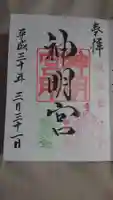 奉拝
神明宮
平成三十年 三月三十一日